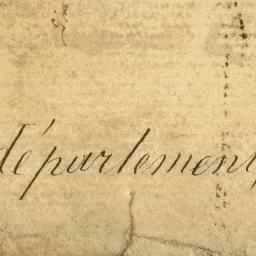 département